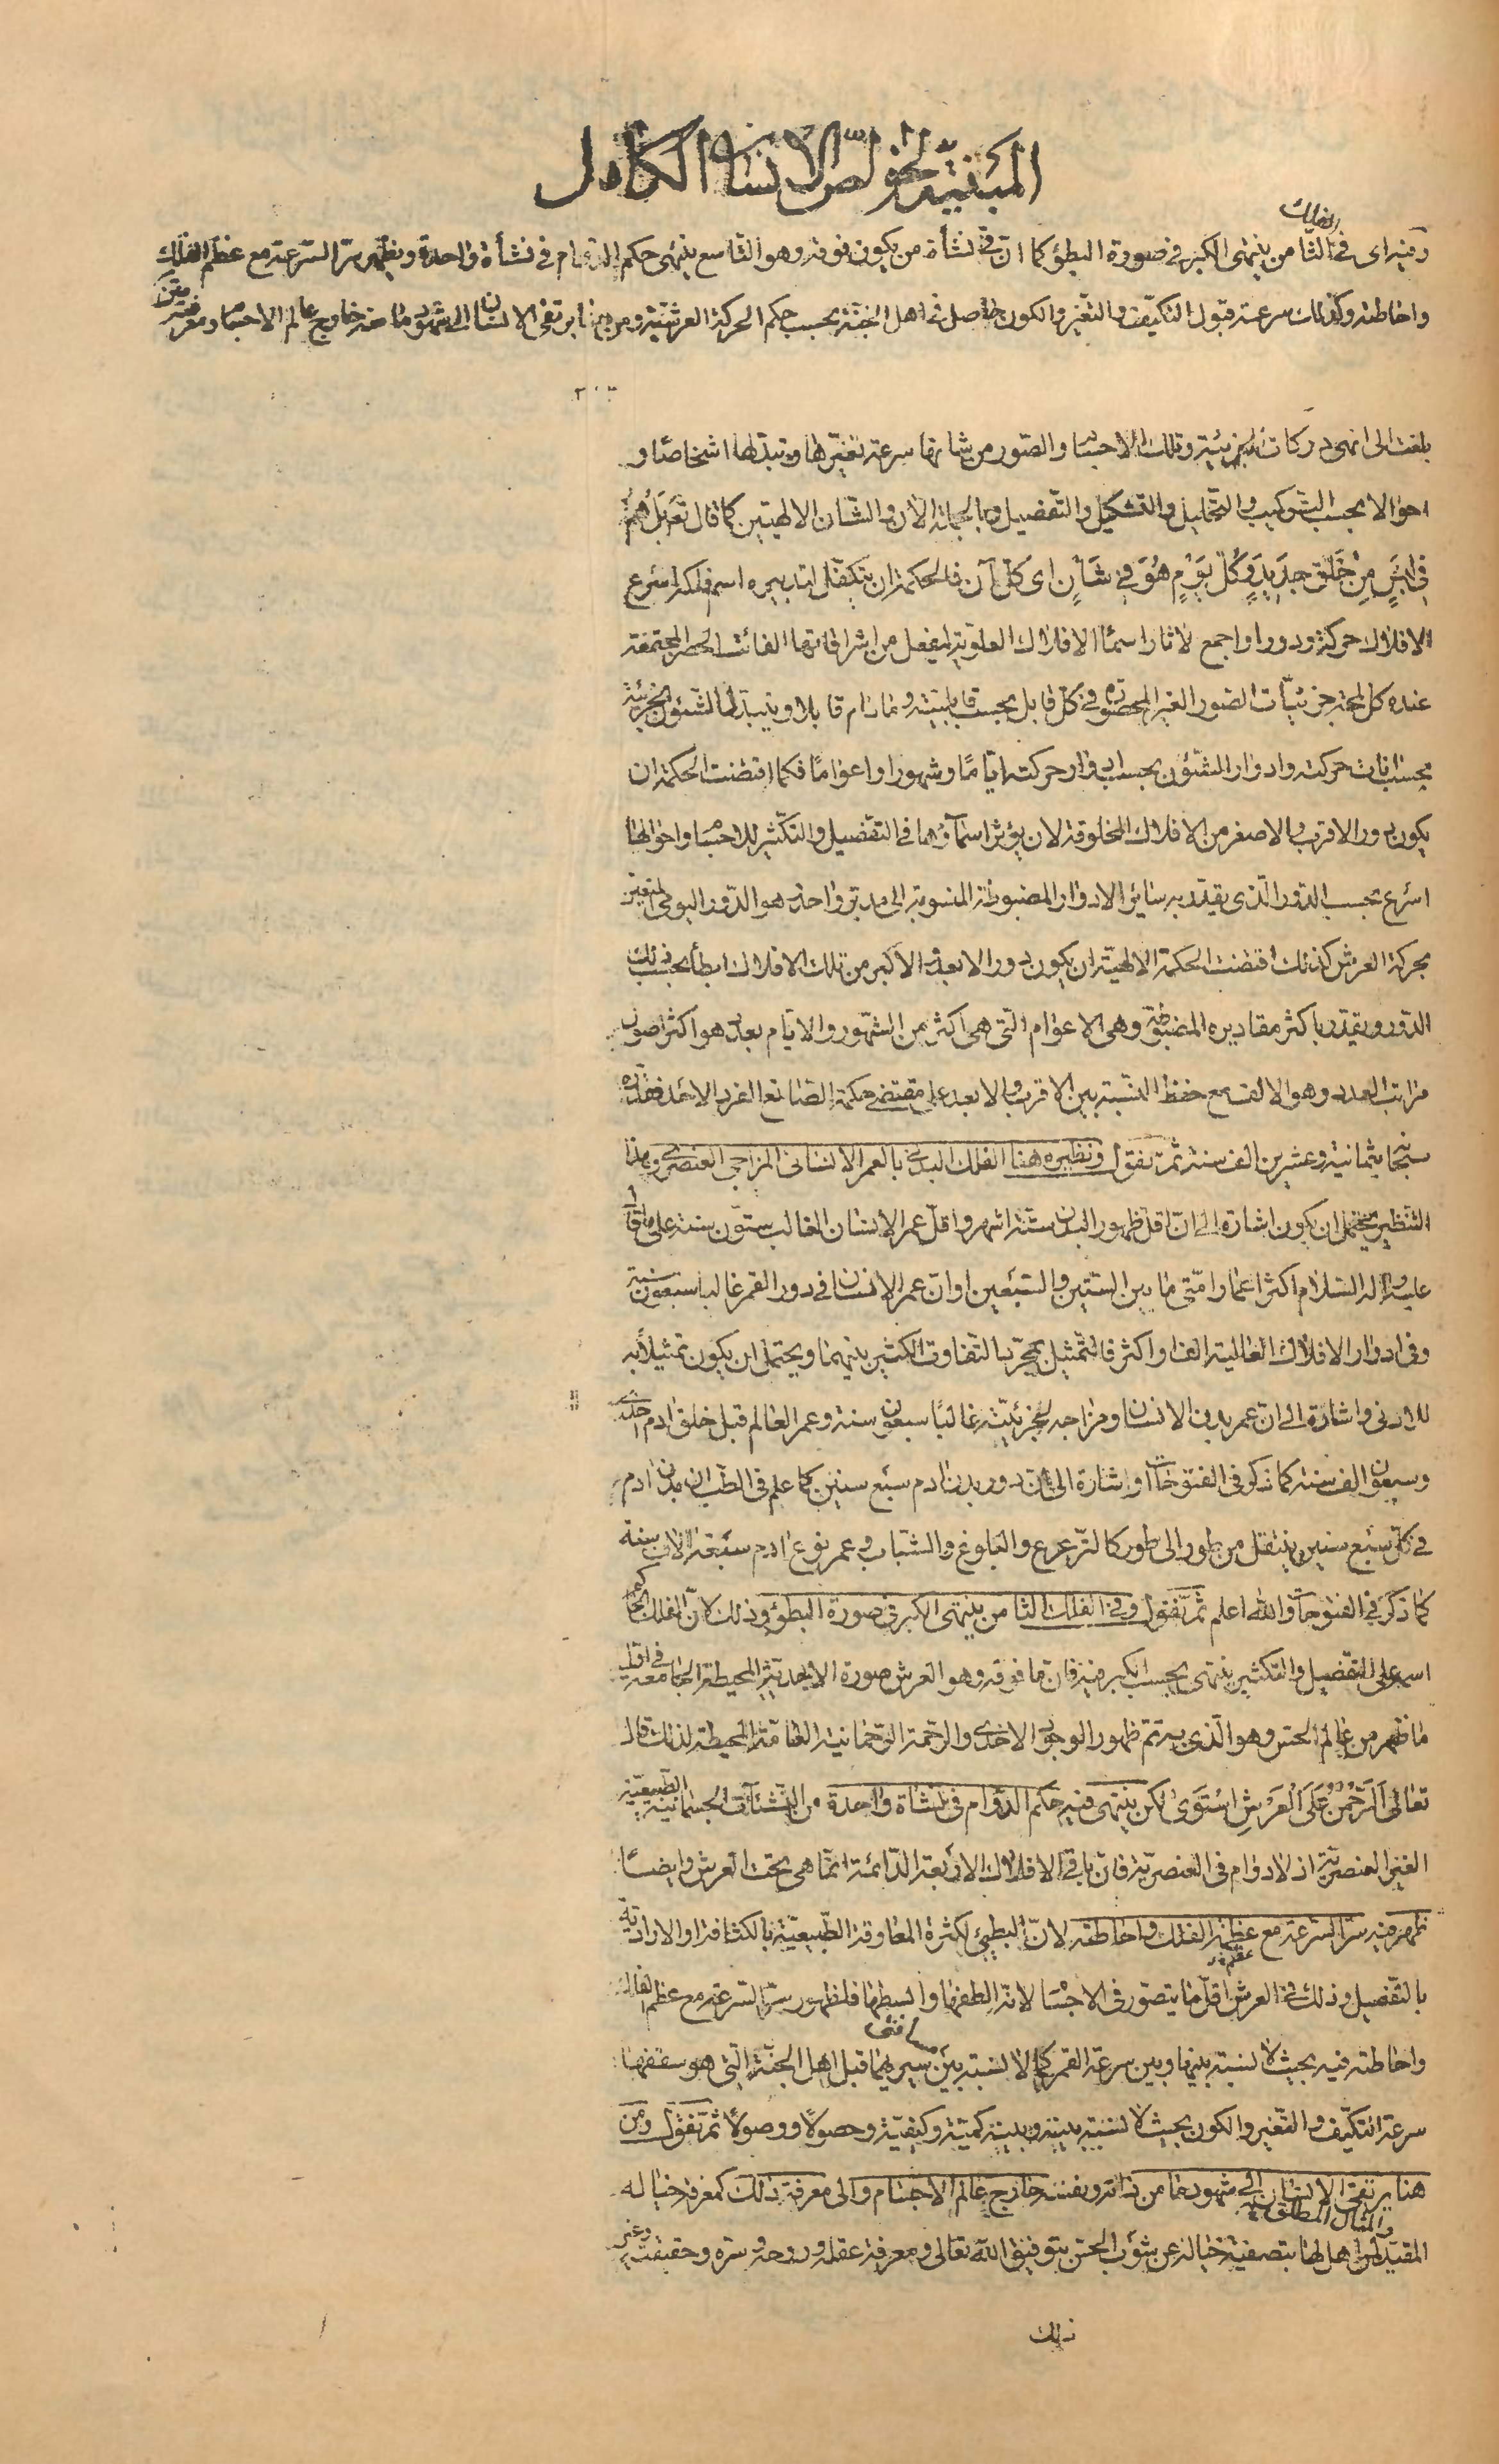 المبنية لخواص الانسان الكامل
الفلك
وفيه اى فى الثامن ينتهى الكبر فى صورة البطؤ كما ان فى نشأة من يكون فوقه وهو التاسع ينتهى حكم الدوام فى نشأة واحدة ويظهر سر السرعة مع عظم الفلك
واحاطته وكذلك سرعة قبول التكيف والتغير والكون حاصل فى اهل الجنة بحسب حكم الحركة العرشية ومن هنا يرتقى الانسان الى شهود ما منه خارج عالم الاجسام ومعرفة
بلغت الى انهى دركات الجزئية وتلك الاجسام والصور من شانها سرعة تغيرها وتبدلها اشخاصا و
احوالا بحسب التركيب والتحليل والتشكيل والتفصيل وبالجملة الآن والشان الالهيين كما قال تع بل هم
فى لبس من خلق جديد وكل يوم هو فى شان اى كل آن فالحكمة ان يتكفل لتدبيره اسم فلكه اسرع
الافلاك حركة ودورا واجمع لاثار اسماء الافلاك العلوية ليفعل من اشراقاتها الفائت الحصر المجتمعة
عنده كل لمحة جزئيات الصور الغير المحصورة فى كل قابل بحسب قابليته وما دام قابلا ويتبدل الشئون الجزئية
بحسب انات حركته وادوار الشئون بحسب ادوار حركته اياما وشهورا واعواما فكما اقتضت الحكمة ان
يكون دور الاقرب والاصغر من الافلاك المخلوقة لان يؤثر اسماؤها فى التفصيل والتكثير للاجسام واحوالها
اسرع بحسب الدور الذى يقدر به سائر الادوار المضبوطة المنسوبة الى مدبر واحد هو الدور اليومى المتعين
بحركة العرش كذلك اقتضت الحكمة الالهية ان يكون دور الابعد والاكبر من تلك الافلاك ابطأ بحسب ذلك
الدور ويقدر باكثر مقاديره المضبوطة وهى الاعوام التى هى اكثر من الشهور والايام بعدد هو اكثر اصول
مراتب العدد وهو الالف مع حفظ النسبة بين الاقرب والابعد على مقتضى حكمة الصانع الفرد الاحد فقدره
سبحانه بثمانية وعشرين الف سنة ثم نقول ونظيره هنا الفلك البدنى بالعمر الانسانى المزاجى العنصرى وهذا
التنظير يحتمل ان يكون اشارة الى ان اقل ظهور البدن ستة اشهر واقل عمر الانسان الغالب ستون سنة على ما قال
عليه واله السلام اكثر اعمار امتى ما بين الستين والسبعين او ان عمر الانسان فى دور القمر غالبا سبعون سنة
وفى ادوار الافلاك العالية الفا واكثر فالتمثيل بمجرد التفاوت الكثير بينهما ويحتمل ان يكون تمثيلا به
للادنى واشارة الى ان عمر بدن الانسان ومزاجه لجزئيته غالبا سبعون سنة وعمر العالم قبل خلق ادم احدى
وسبعون الف سنة كما ذكر فى الفتوحات او اشارة الى ان دور بدن ادم سبع سنين كما علم فى الطب ان بدن ادم
فى كل سبع سنين ينتقل من طور الى طور كالترعرع والبلوغ والشباب و عمر نوع ادم سبعة الاف سنة
كما ذكر فى الفتوحات والله اعلم ثم نقول وفى الفلك الثامن ينتهى الكبر فى صورة البطؤ وذلك لان الفلك الحاكم
اسمه على التفصيل والتكثير ينتهى بحسب الكبر فيه فان ما فوقه وهو العرش صورة الاحدية المحيطة الجامعة فى اول
ما ظهر من عالم الحس وهو الذى به تم ظهور الوجود الاحدى والرحمة الرحمانية العامة المحيطة لذلك قال
تعالى الرحمن على العرش استوى لكن ينتهى فيه حكم الدوام فى نشاة واحدة من النشئات الجسمانية الطبيعية
الغير العنصرية اذ لا دوام فى العنصرية فان باقى الافلاك الاربعة الدائمة انما هى تحت العرش وايضا
ظهر فيه سر السرعة مع عظمة الفلك واحاطته لان البطئ لكثرة المعاوقة الطبيعية بالكثافة او الارادية
بالتفصيل وذلك فى العرش اقل ما يتصور فى الاجسام لانه الطفها وابسطها فلظهور سر السرعة مع عظم الفلك
واحاطته فيه بحيث لا نسبة بينها وبين سرعة القمر كما لا نسبة بين مسافتى سيريهما قبل اهل الجنة التى هو سقفها
سرعة التكيف والتغير والكون بحيث لا نسبة بينه وبينه كمية وكيفية وحصولا ووصولا ثم نقول ومن
هنا يرتقى الانسان الى شهود ما من ذاته ونفسه خارج عالم الاجسام والى معرفة ذلك كمعرفة خياله
والمثال المطلق
المقيد لمن اهل لها بتصفية خياله عن شوب الحس بتوفيق الله تعالى ومعرفة عقله وروحه وسره وحقيقته وغير
ذلك